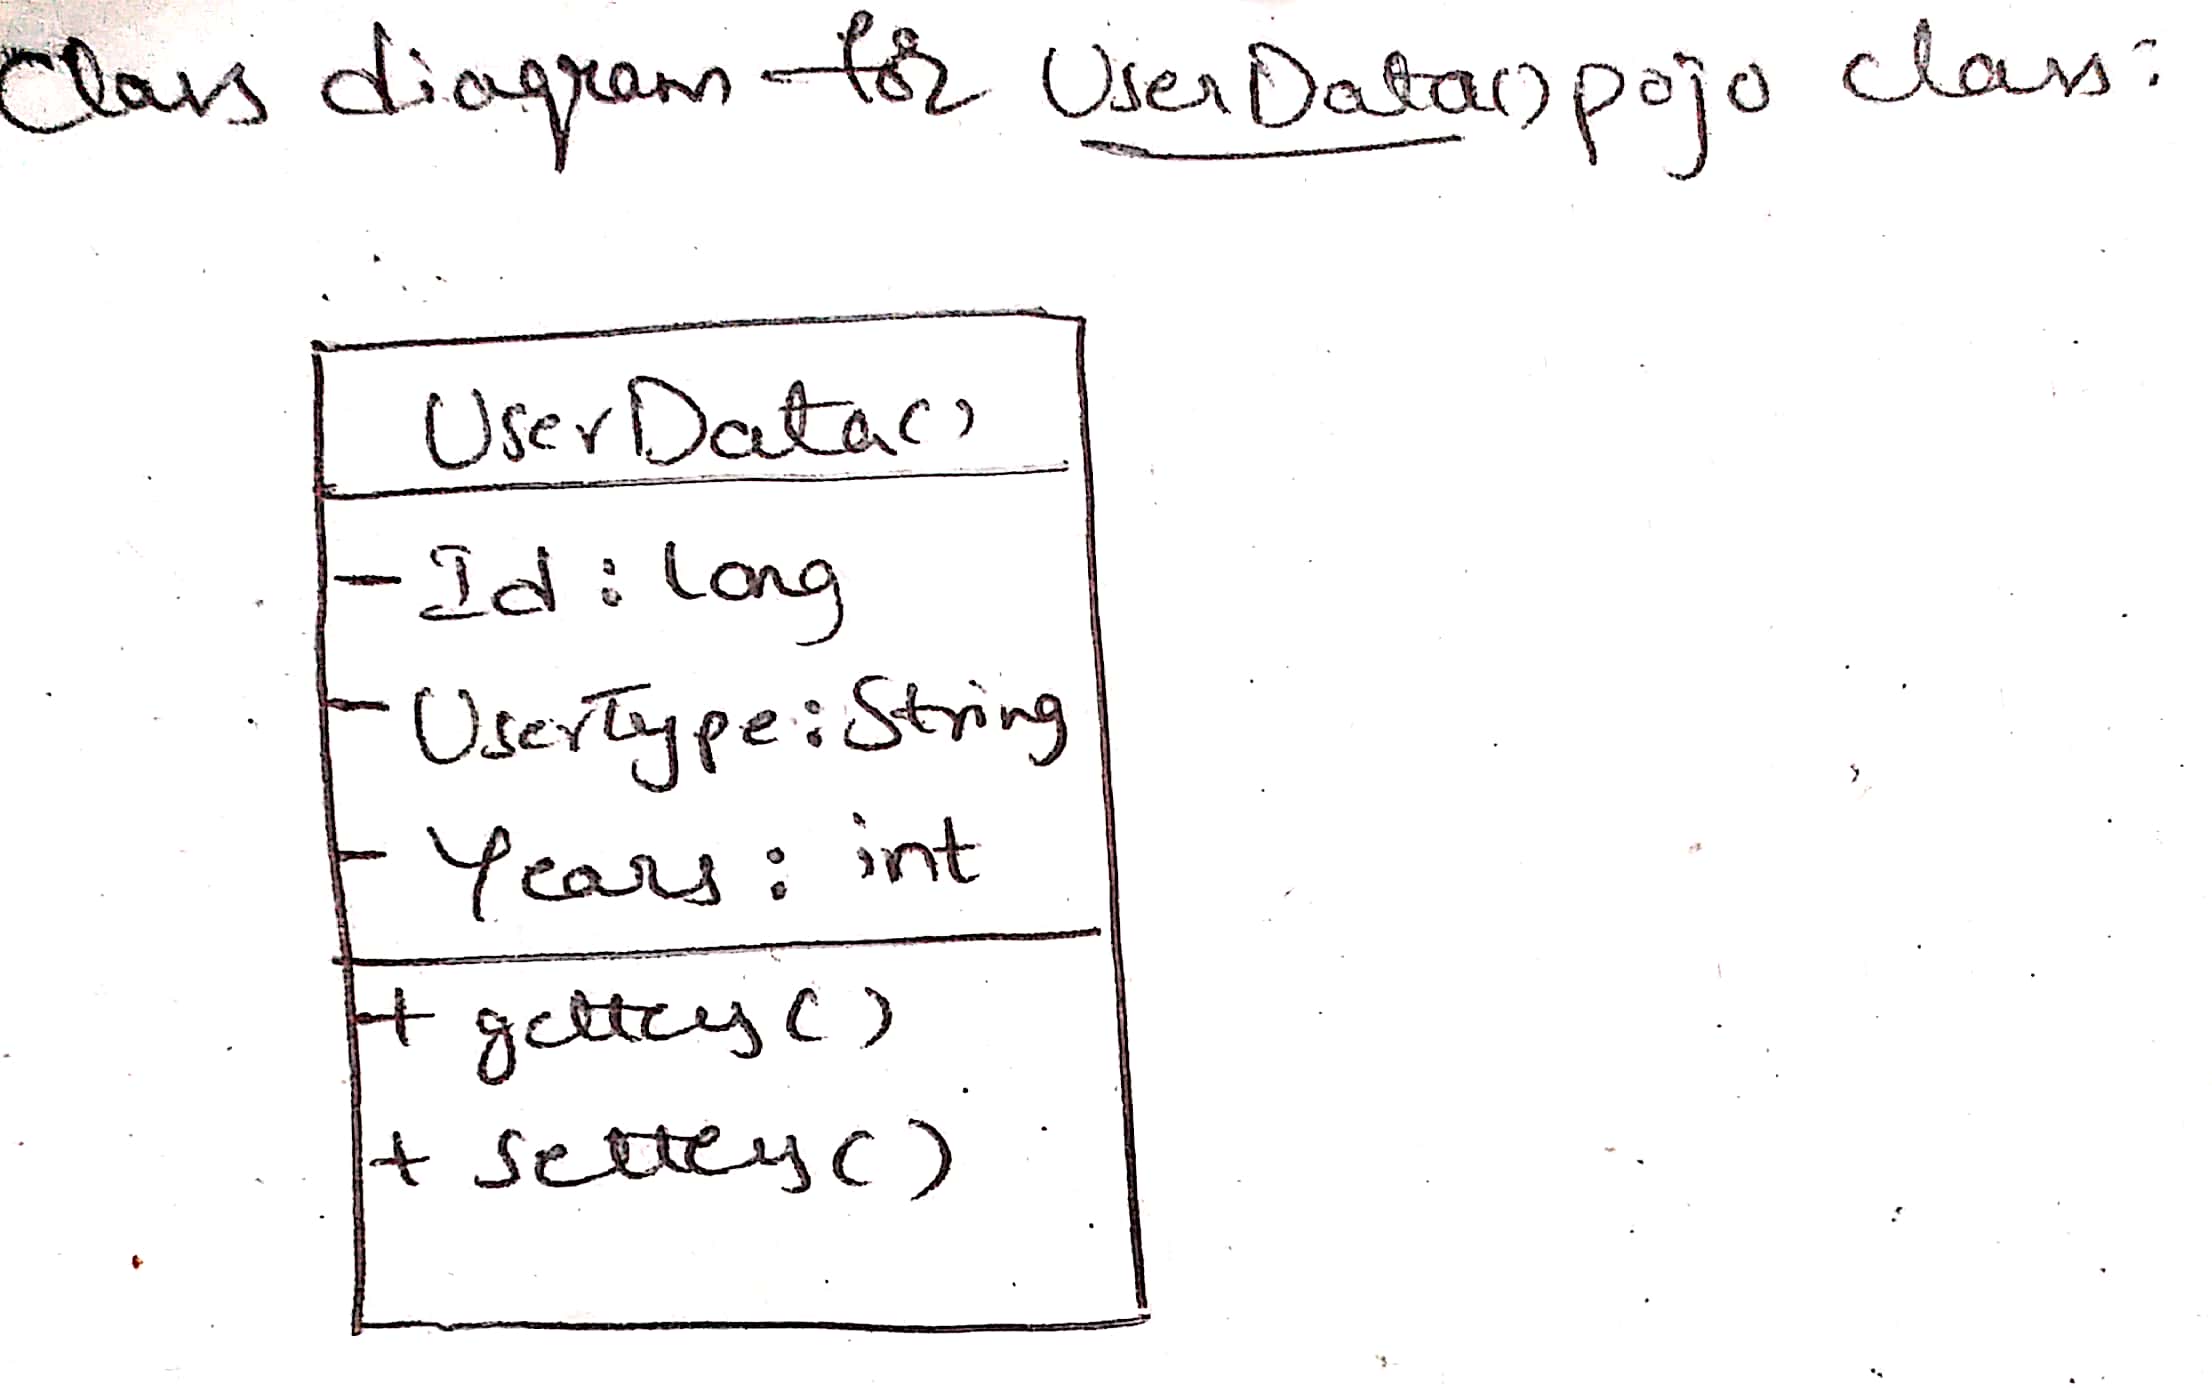 Class diagram for UserData() pojo class:
UserData()
- Id : long
- UserType : String
- Years : int
+ getters()
+ setters()